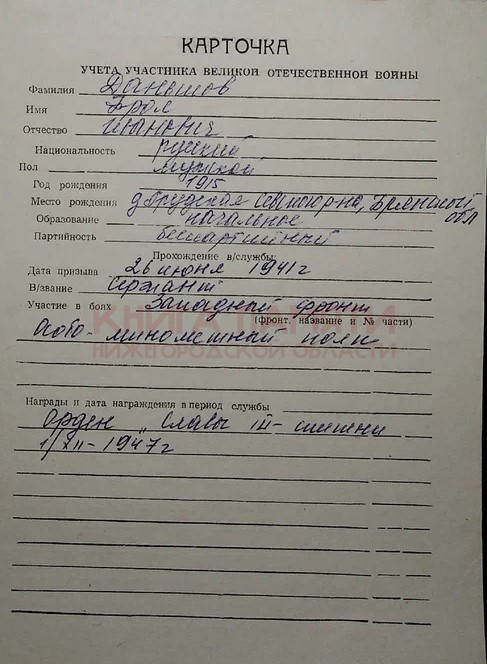 КАРТОЧКА
УЧЕТА УЧАСТНИКА ВЕЛИКОЙ ОТЕЧЕСТВЕННОЙ ВОЙНЫ
Фамилия Даньшов
Имя Фрол
Отчество Иванович
Национальность русский
Пол мужской
Год рождения 1915
Место рождения Брянской
обл
Образование начальное
Партийность беспартийный
Прохождение в/службы:
Дата призыва 26 июня 1941 г
В/звание Сержант
Участие в боях Западный фронт
(фронт. название и № части)
минометный полк
КНИГА ПАМЯТИ
НИЖЕГОРОДСКОЙ ОБЛАСТИ
Награды и дата награждения в период службы
Орден „Славы III-степени
1/XII-1947 г